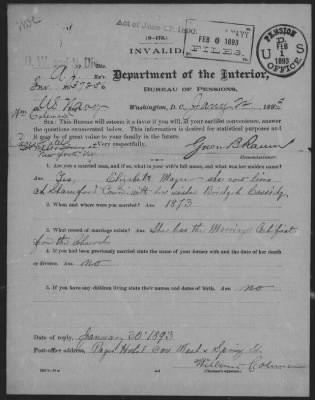 Act of June 27, 1890.
NAVY
FEB 6 1893
FILES.
PENSION
FEB
1
1893
U S
OFFICE
(3-173.)
INVALID
Department of the Interior,
BUREAU OF PENSIONS,
Washington, D. C.,
U.S. Navy
SIR: This Bureau will esteem it a favor if you will, at your earliest convenience, answer
the questions enumerated below. This information is desired for statistical purposes and
it may be of great value to your family in the future.
Very respectfully,
Green B. Raum
Commissioner.
1. Are you a married man, and if so, what is your wife's full name, and what was her maiden name?
Ans. Yes, Elizabeth she now lives
at Stamford Conn with her sister Bridget Cassidy
2. When and where were you married? Ans. 1873
3. What record of marriage exists? Ans. She has the Marriage
from the Church
4. If you had been previously married state the name of your former wife and the date of her death
or divorce. Ans. no
5. If you have any children living state their names and dates of birth. Ans. no
Date of reply, January 30 1893
Post-office address, Hotel Cor West & Spring St.
William Coleman